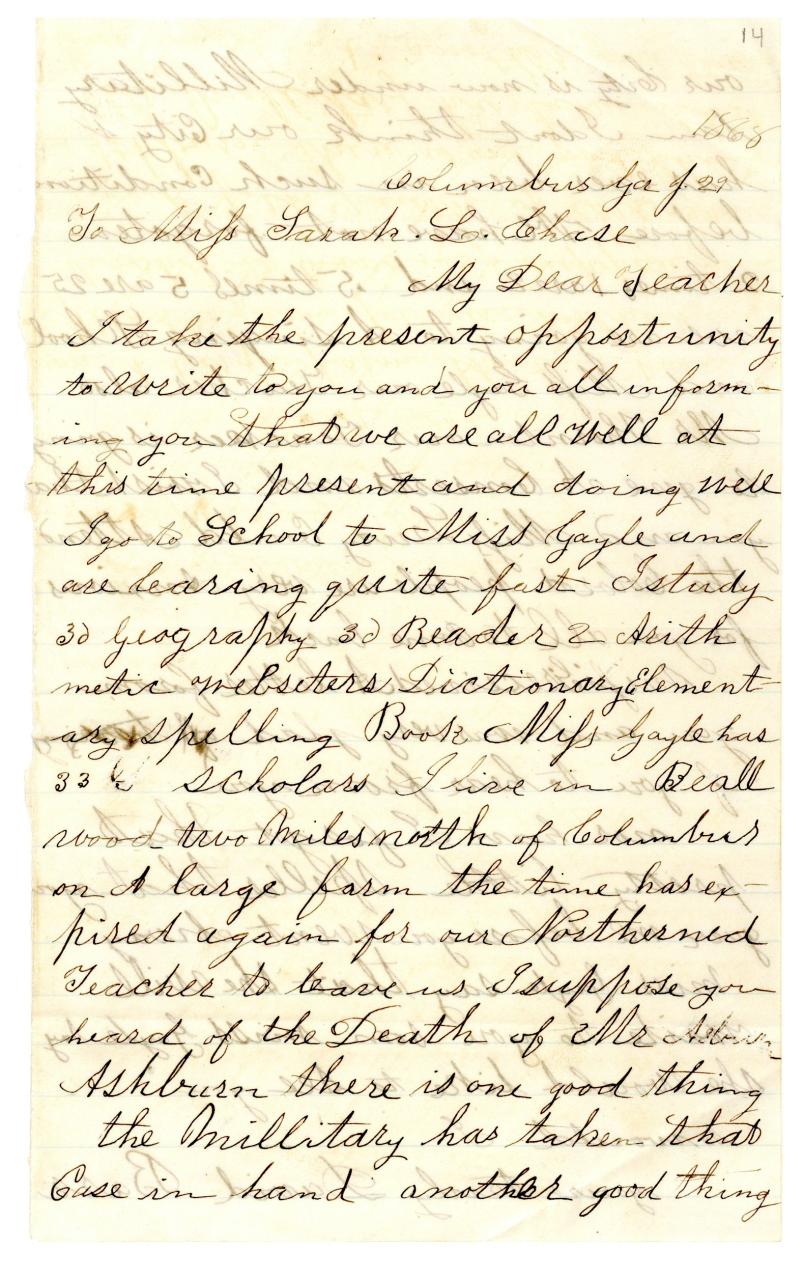 14
1868
Columbus Ga J. 29
To Miss Sarah. L. Chase
My Dear Teacher
I take the present opportunity
to Write to you and you all inform-
ing you that we are all well at
this time present and doing well
I go to School to Miss Gayle and
are learing quite fast I study
3d Geography 3d Reader 2 Arith
metic webseters Dictionary Element
ary spelling Book Miss Gayle has
33 scholars I live in Beall
wood two Miles north of Columbus
on A large farm the time has ex-
pired again for our Northerned
Teacher to leave us I suppose you
heard of the Death of Mr
Ashburn there is one good thing
the Millitary has taken that
Case in hand another good thing